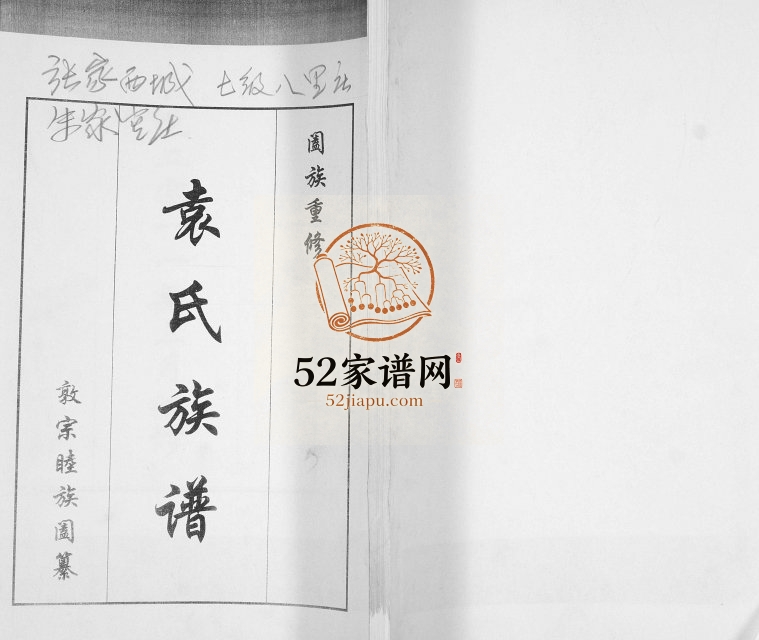 张家西城 七级八里庄
朱家宫庄
阖族重修
袁氏族谱
敦宗睦族阖纂
52家谱网
52jiapu.com